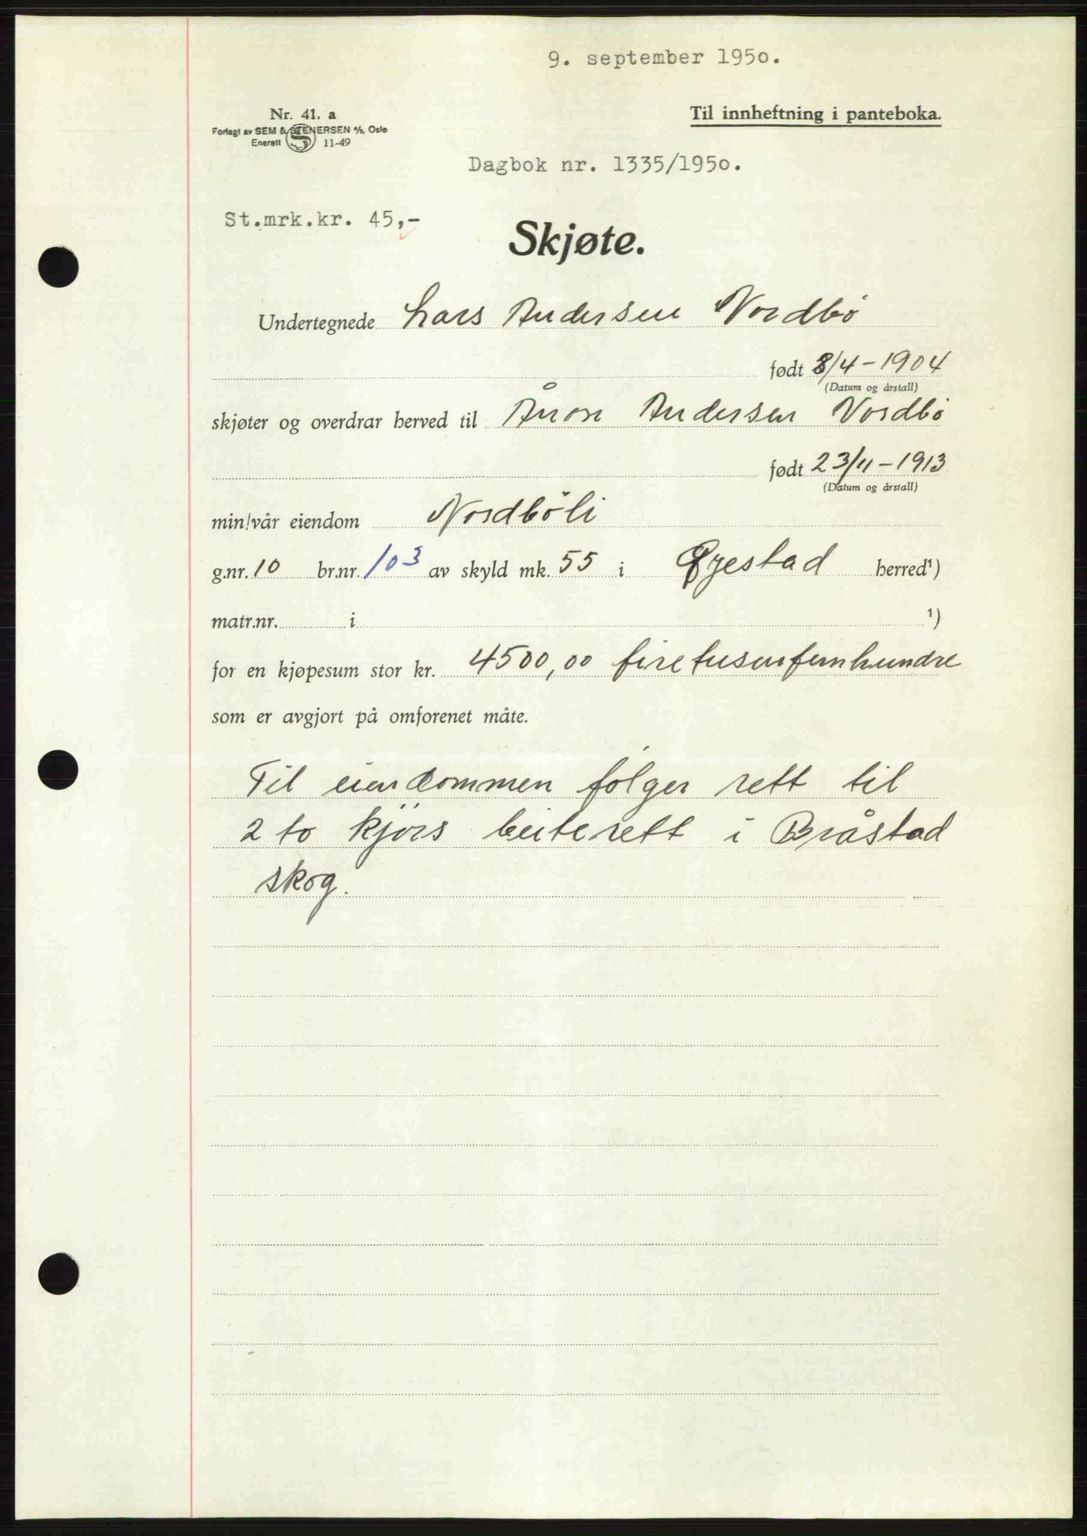 9. september 1950.
Nr. 41. a
Forlagt av SEM & STENERSEN A/S, Oslo
Enerett 11-49
Til innheftning i panteboka.
Dagbok nr. 1335/1950.
St.mrk.kr. 45,-
Skjøte.
Undertegnede Lars Andersen Nordbø
født 8/4-1904
(Datum og årstall)
skjøter og overdrar herved til Ånon Andersen Nordbø
født 23/11-1913
(Datum og årstall)
min/vår eiendom Nordbøli
g.nr. 10 br.nr. 103 av skyld mk. 55 i Øyestad herred¹)
matr.nr. i ¹)
for en kjøpesum stor kr. 4500,00 firetusenfemhundre
som er avgjort på omforenet måte.
Til eiendommen følger rett til
2 to kjørs beiterett i Bråstad
skog.